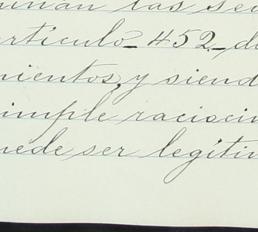 minan las se
articulo_452_d
mientos, y siend
simple raciocin
uede ser legitim